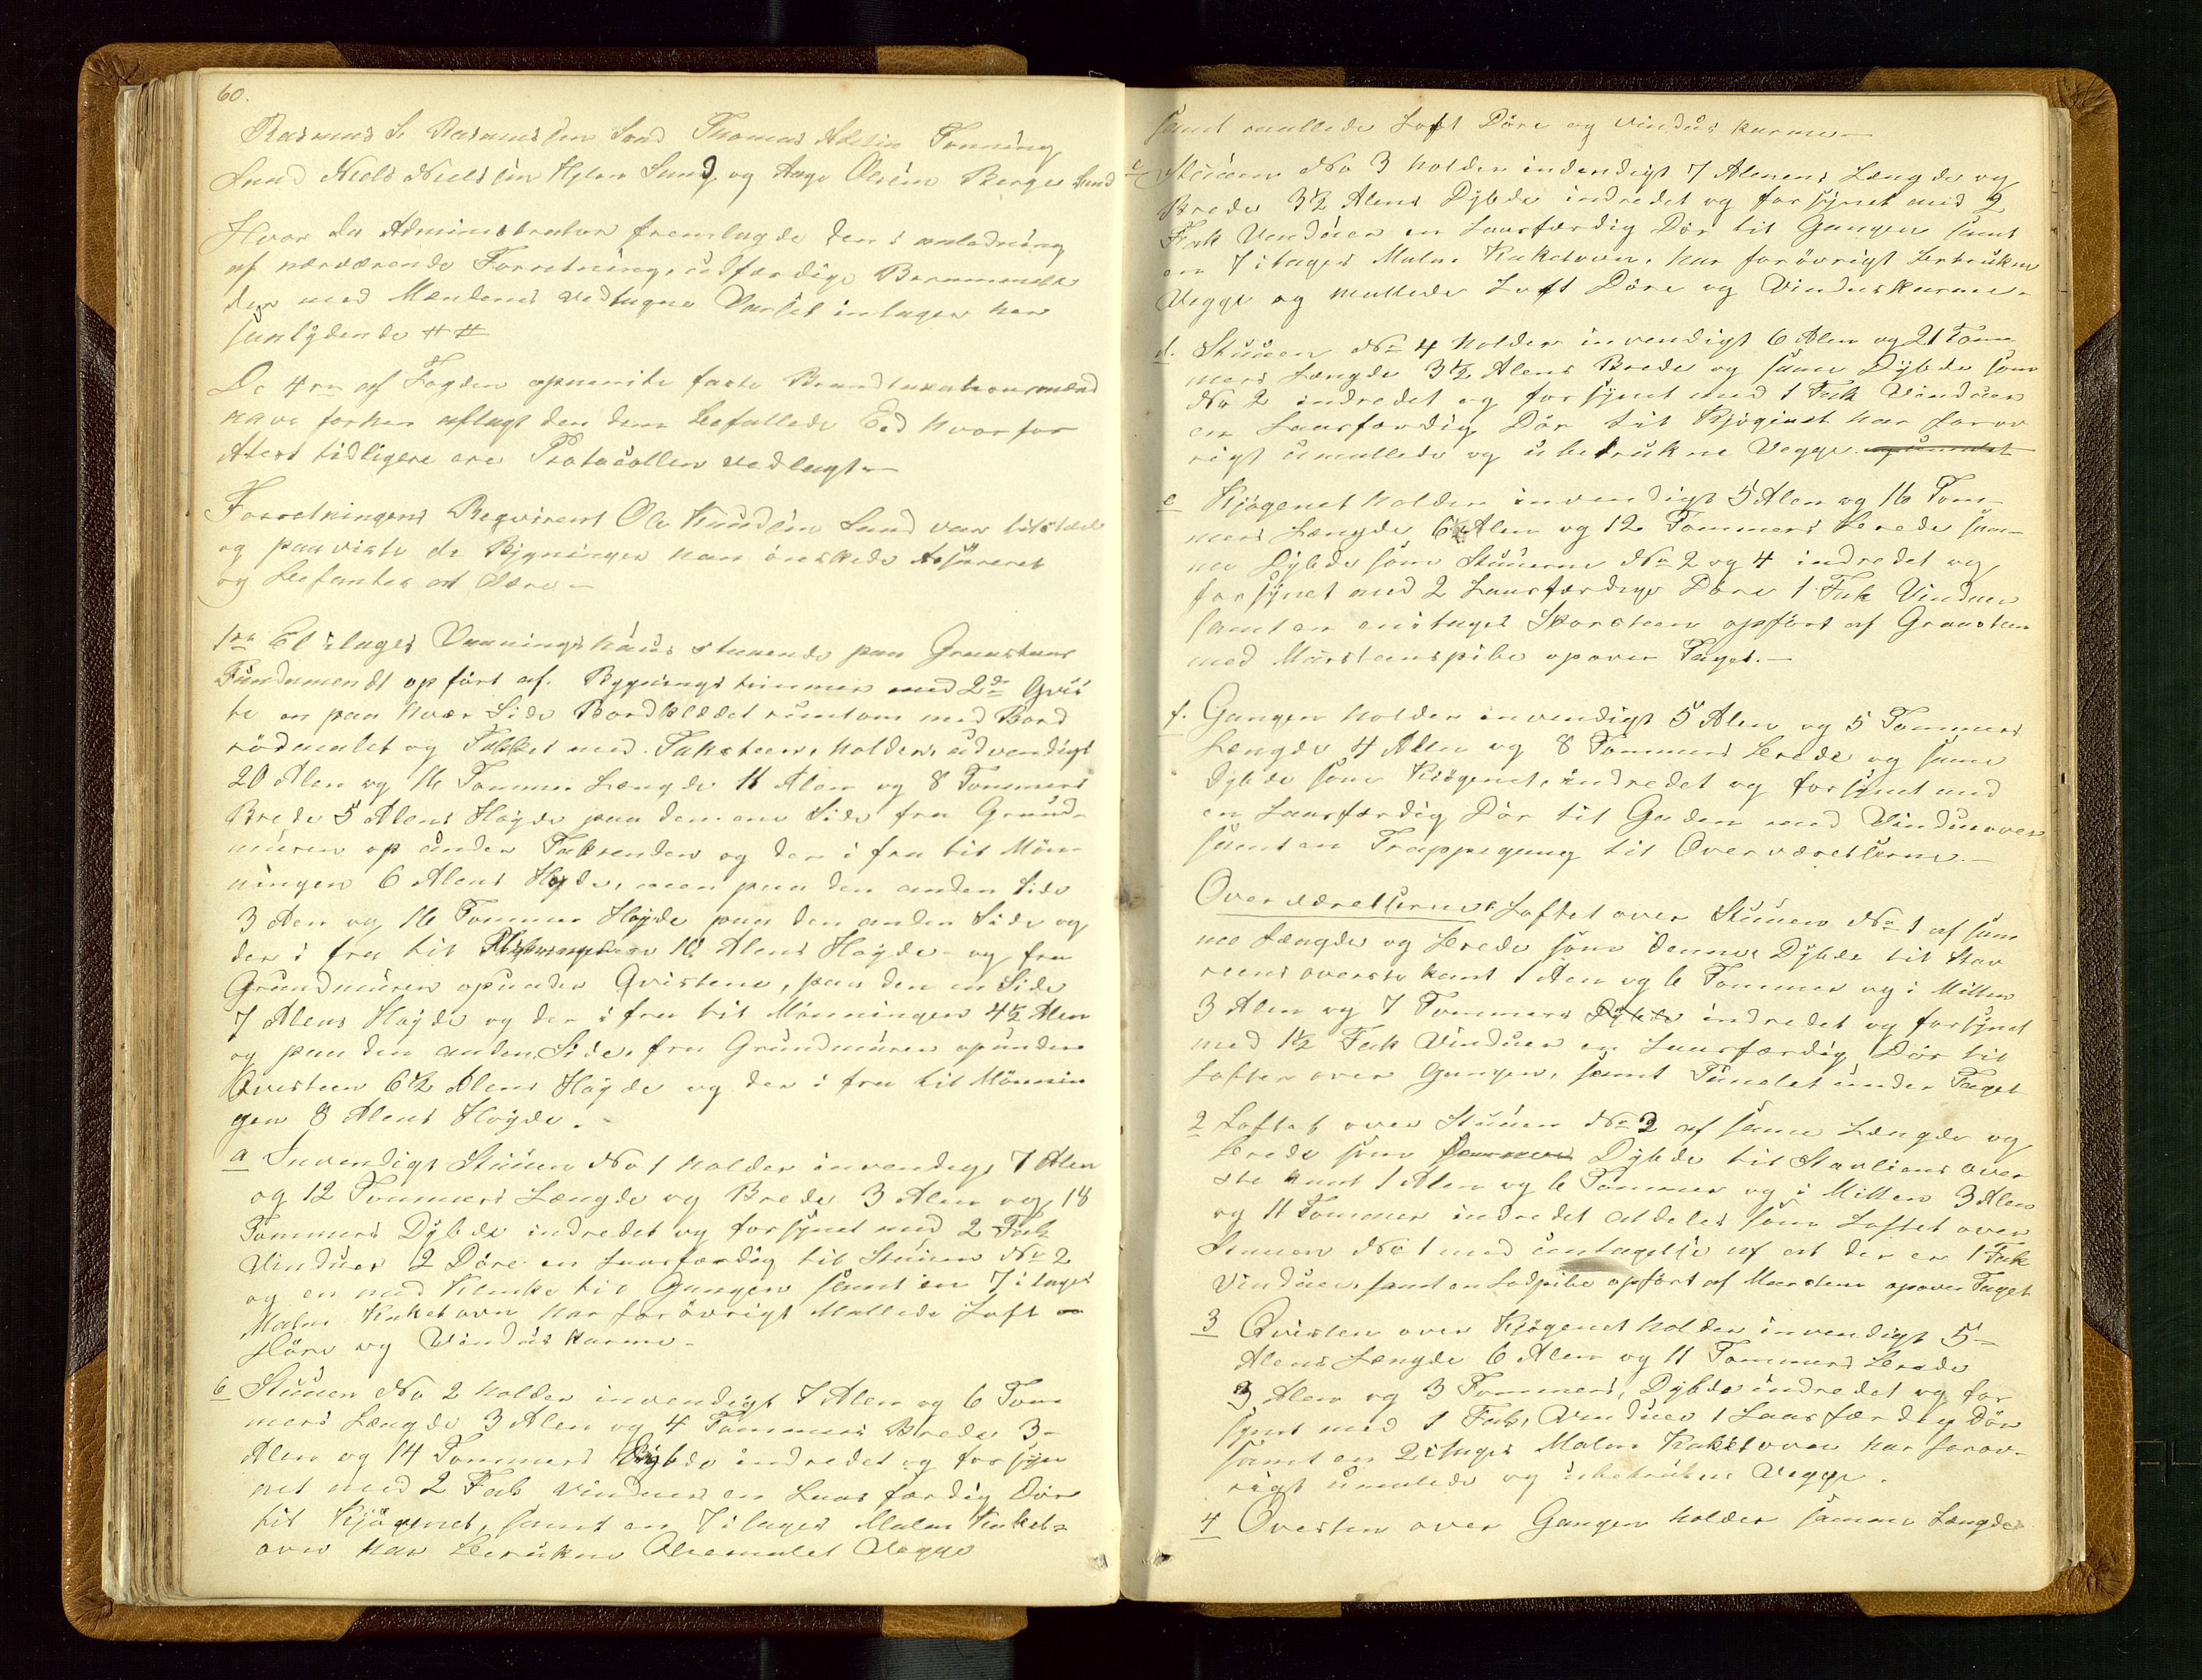 60.
Rasmus S. Rasmussen Sund Thomas Adsin Tonning
Sund Niels Nielsen Hylen Sund og Aage Olsen Berge Sund
Hvor da Administrator fremlagde den i anledning
af nærværende Forretning udfærdige Berammelse
der med Mændenes vedtagne Varsel intages her
saalydende # #
De 4re af Fogden opnevnte faste Brandtaxationsmænd
have forhen aflagt den dem befallede Eed hvorfor
Atest tidligere ere Protocollen vedlagt -
Forretningens Reqvirent Ole Knudsen Sund var tilstæde
og paaviste de Bygninger han önskede Assureret
og befantes at være -
1te Et 2 etages Vaaningshuus staaende paa Graasteens
Fundamendt opfört af Bygningstimmer med 2de Qvis
te en paa hver Side Bordklædet rundtom med Bord
rödmalet og Tækket med Taksteen, holder udvendigt
20 Alen og 16 Tommer Længde 11 Alen og 8 Tommers
Brede 5 Alens Höyde paa den ene Side fra Grund-
muren op under Takrenden og der i fra til Mön-
ningen 6 Alens Höyde, men paa den anden Side
3 Alen og 16 Tommer Höyde paa den anden Side og
der i fra til 10 Alens Höyde - og fra
Grundmuren opunder Qvistene, paa den en Side
7 Alens Höyde og der i fra til Mönningen 4½ Alen
og paa den anden Side, fra Grundmuren opunder
Qvisteen 6½ Alens Höyde og der i fra til Mönnin
gen 8 Alens Höyde. -
a Invendigt Stuuen No 1 holder invendigt 7 Alen
og 12 Tommers Længde og Brede 3 Alen og 18
Tommers Dybde indredet og forsynet med 2 Fak
Vinduer 2 Döre en Laasfærdig til Stuuen No 2
og en med Klinke til Gangen samt en 7 i tages
Malm Kakelovn har forövrigt Mallede Loft
Döre og Vindus Karme -
b Stuuen No 2 holder invendigt 7 Alen og 6 Tom
mers Længde 3 Alen og 4 Tommers Brede 3 -
Alen og 14 Tommers Dybde indredet og forsy
net med 2 Fak Vinduer en Laasfærdig Dör
til Kjögenet, samt en 7 i tages Malm Kakel=
ovn har betrukne Vægge
samt mallede Loft Döre og Vindus Karme -
c Stuuen No 3 holder indvendigt 7 Alens Længde og
Brede 3½ Alens Dybde indredet og forsynet med 2
Fak Vinduer en Laasfærdig Dör til Gangen samt
en 7 i tages Malm Kakelovn, har forövrigt betrukne
Vægge og mallede Loft Döre og Vinduskarme -
d. Stuuen No 4 holder invendigt 6 Alen og 21 Tom
mers Længde 3½ Alens Brede og same Dybde som
No 2 indredet og forsynet med 1 Fak Vinduer
en Laasfærdig Dör til Kjöginet har foröv
rigt umallede og ubetrukne Vegge
e Kjögenet holder invendigt 5 Alen og 16 Tom-
mers Længde 6 Alen og 12 Tommers brede sam-
me Dybde som Stuuerne No 2 og 4 indredet og
forsynet med 2 Laasfærdige Döre 1 Fak Vinduer
samt en enitages Skorsteen opfört af Graasteen
med Murstenspibe opover Taget. -
f. Gangen holder invendigt 5 Alen og 5 Tommers
Længde 4 Alen og 8 Tommers brede og same
dybde som Kjögenet, indredet og forsynet med
en Laasfærdig Dör til Gaden med Vindueover
samt en Trappegang til Overværelserne. -
Overværelserne Loftet over Stuuen No 1 af sam
me Længde og brede som denne, Dybde til Stav
reens överste kant 1 Alen og 6 Tommer og i Mitten
3 Alen og 7 Tommers indredet og forsynet
med 1½ Fak Vinduer en Laasfærdig Dör til
Loftet over Gangen, samt Panelet under Taget
2 Loftet over Stuuen No 2 af same Længde og
brede som Dybde til Stavliens över
ste kant 1 Alen og 6 Tommer og i Mitten 3 Alen
og 11 Tommer indredet aldeles som Loftet over
Stuuen No 1 med untagelse af at der er 1 Fak
Vinduer, samt en Lodpibe opfört af Mursteen opover Taget
3 Qvisten over Kjögenet holder invendigt 5 -
Alens Længde 6 Alen og 11 Tommers brede
3 Alen og 3 Tommers, Dybde indredet og for
synet med 1 Fak Vinduer 1 Laasfærdig Dör
samt en 2 etages Malm Kakelovn har foröv-
rigt umalede og ubetrukne Vegge.
4 Qvisten over Gangen holder samme Længde